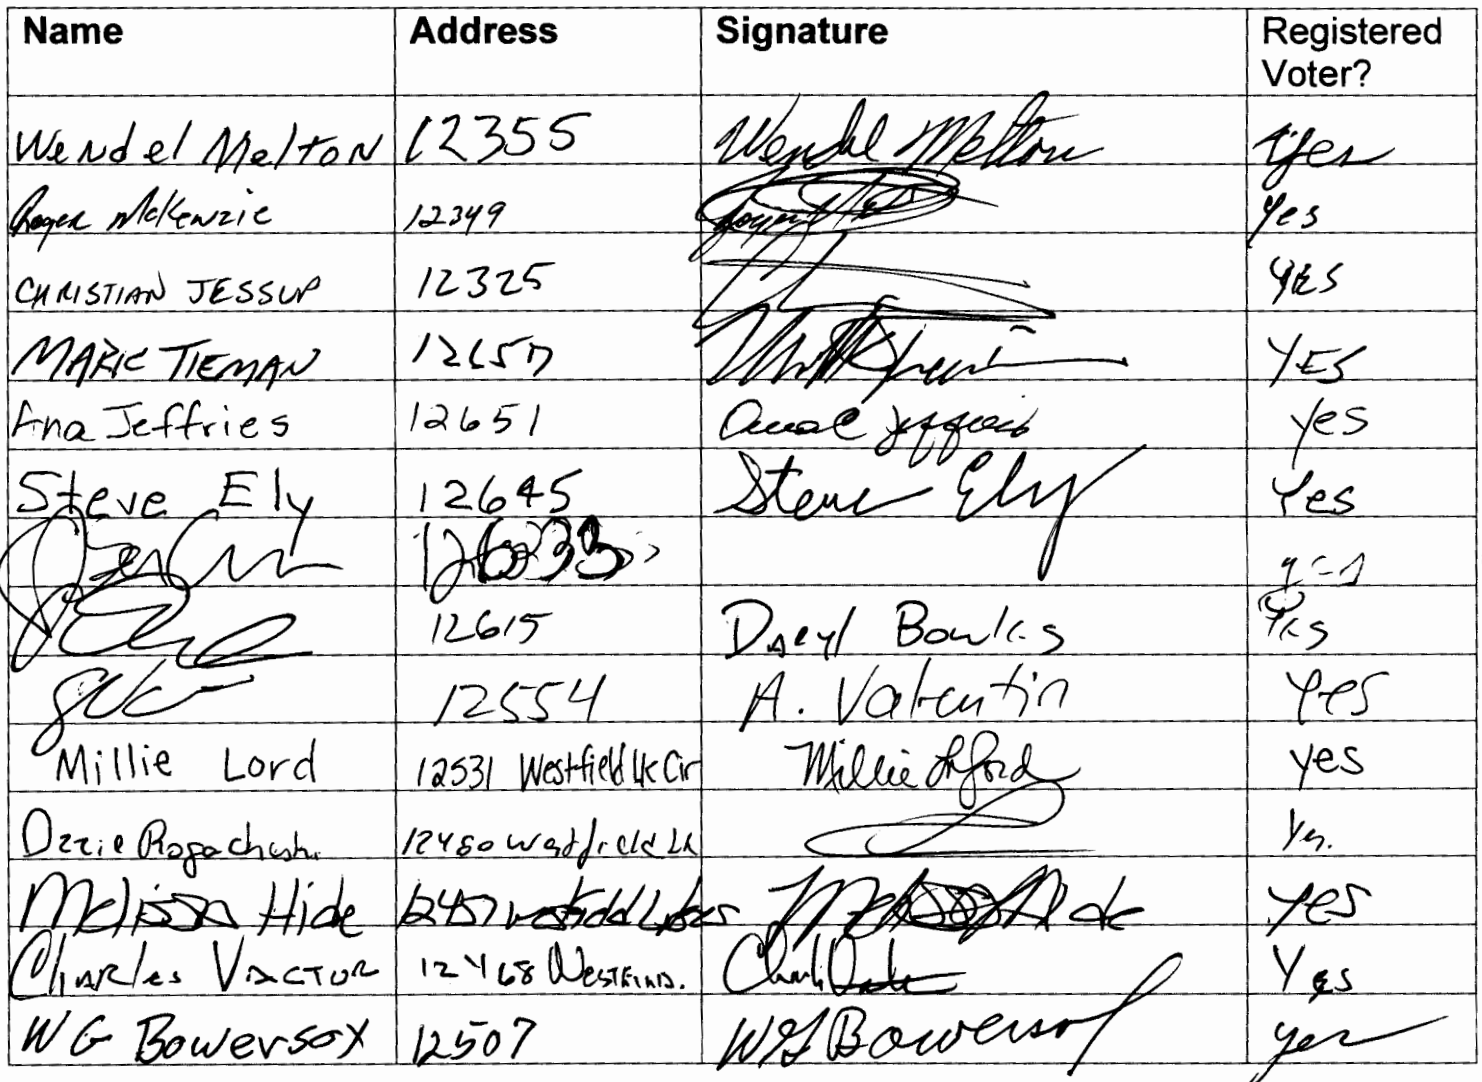 Name Address Signature Registered
Voter?
Wendel Melton 12355 Wendel Melton yes
Roger McKenzie 12349 Roger Yes
CHRISTIAN JESSUP 12325 YES
MARK TIEMAN 12657 YES
Ana Jeffries 12651 Ana C Jeffries yes
Steve Ely 12645 Steve Ely Yes
yes
12615 Daryl Bowles Yes
12554 A. Valentin Yes
Millie Lord 12531 Westfield Lk Cir Millie Lord yes
Ozzie 12480 Westfield Lk Yes
Melissa Hide 12457 Westfield Lakes Melissa Hide yes
Charles VACTOR 12468 Yes
WG Bowersox 12507 WG Bowersox yes